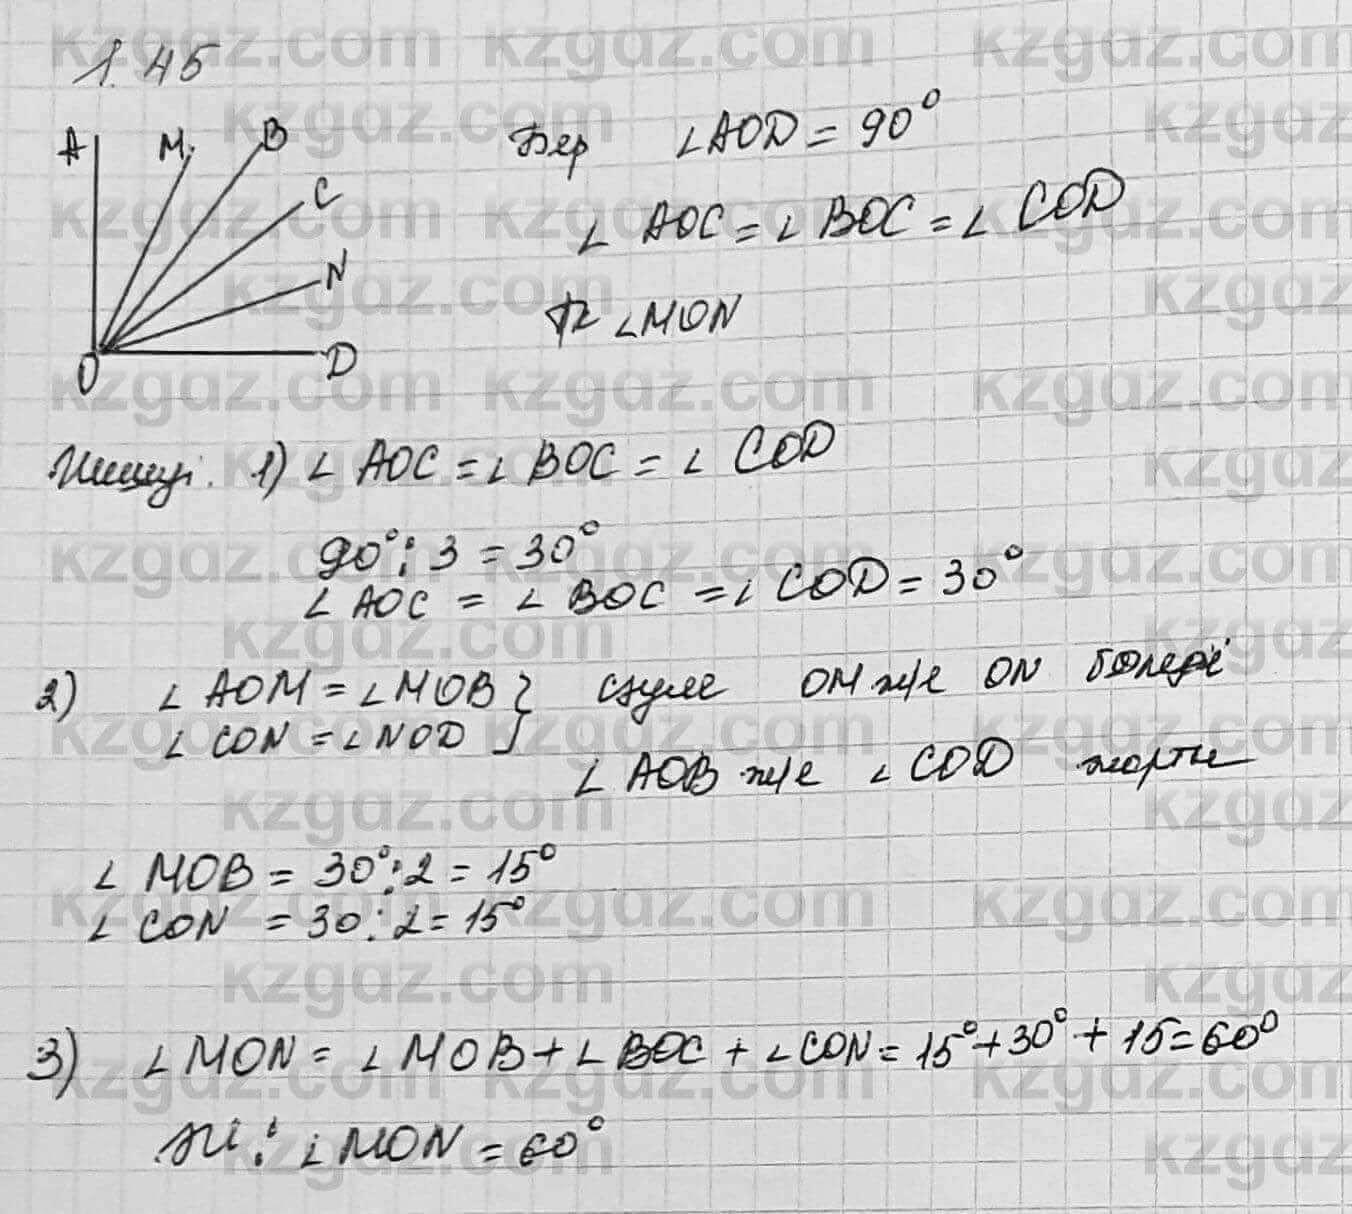 1.45
A M B C N D O
Бер ∠AOD = 90°
∠AOC = ∠BOC = ∠COD
Тк ∠MON
Шешуі. 1) ∠AOC = ∠BOC = ∠COD
90° : 3 = 30°
∠AOC = ∠BOC = ∠COD = 30°
2) ∠AOM = ∠MOB } сәуле OM ж/е ON бөледі
∠CON = ∠NOD
∠AOB ж/е ∠COD
∠MOB = 30° : 2 = 15°
∠CON = 30 : 2 = 15°
3) ∠MON = ∠MOB + ∠BOC + ∠CON = 15° + 30° + 15 = 60°
∠MON = 60°
kzgdz.com